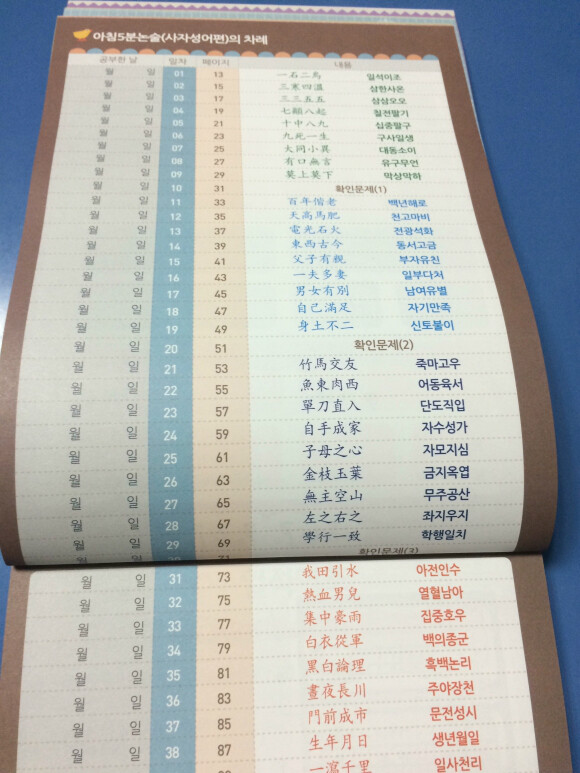 아침5분논술(사자성어편)의 차례
공부한 날 일차 페이지 내용
월 일 01 13 一石二鳥 일석이조
월 일 02 15 三寒四溫 삼한사온
월 일 03 17 三三五五 삼삼오오
월 일 04 19 七顚八起 칠전팔기
월 일 05 21 十中八九 십중팔구
월 일 06 23 九死一生 구사일생
월 일 07 25 大同小異 대동소이
월 일 08 27 有口無言 유구무언
월 일 09 29 莫上莫下 막상막하
월 일 10 31 확인문제(1)
월 일 11 33 百年偕老 백년해로
월 일 12 35 天高馬肥 천고마비
월 일 13 37 電光石火 전광석화
월 일 14 39 東西古今 동서고금
월 일 15 41 父子有親 부자유친
월 일 16 43 一夫多妻 일부다처
월 일 17 45 男女有別 남여유별
월 일 18 47 自己滿足 자기만족
월 일 19 49 身土不二 신토불이
월 일 20 51 확인문제(2)
월 일 21 53 竹馬交友 죽마고우
월 일 22 55 魚東肉西 어동육서
월 일 23 57 單刀直入 단도직입
월 일 24 59 自手成家 자수성가
월 일 25 61 子母之心 자모지심
월 일 26 63 金枝玉葉 금지옥엽
월 일 27 65 無主空山 무주공산
월 일 28 67 左之右之 좌지우지
월 일 29 69 學行一致 학행일치
확인문제(3)
월 일 31 73 我田引水 아전인수
월 일 32 75 熱血男兒 열혈남아
월 일 33 77 集中豪雨 집중호우
월 일 34 79 白衣從軍 백의종군
월 일 35 81 黑白論理 흑백논리
월 일 36 83 晝夜長川 주야장천
월 일 37 85 門前成市 문전성시
월 일 38 87 生年月日 생년월일
一瀉千里 일사천리